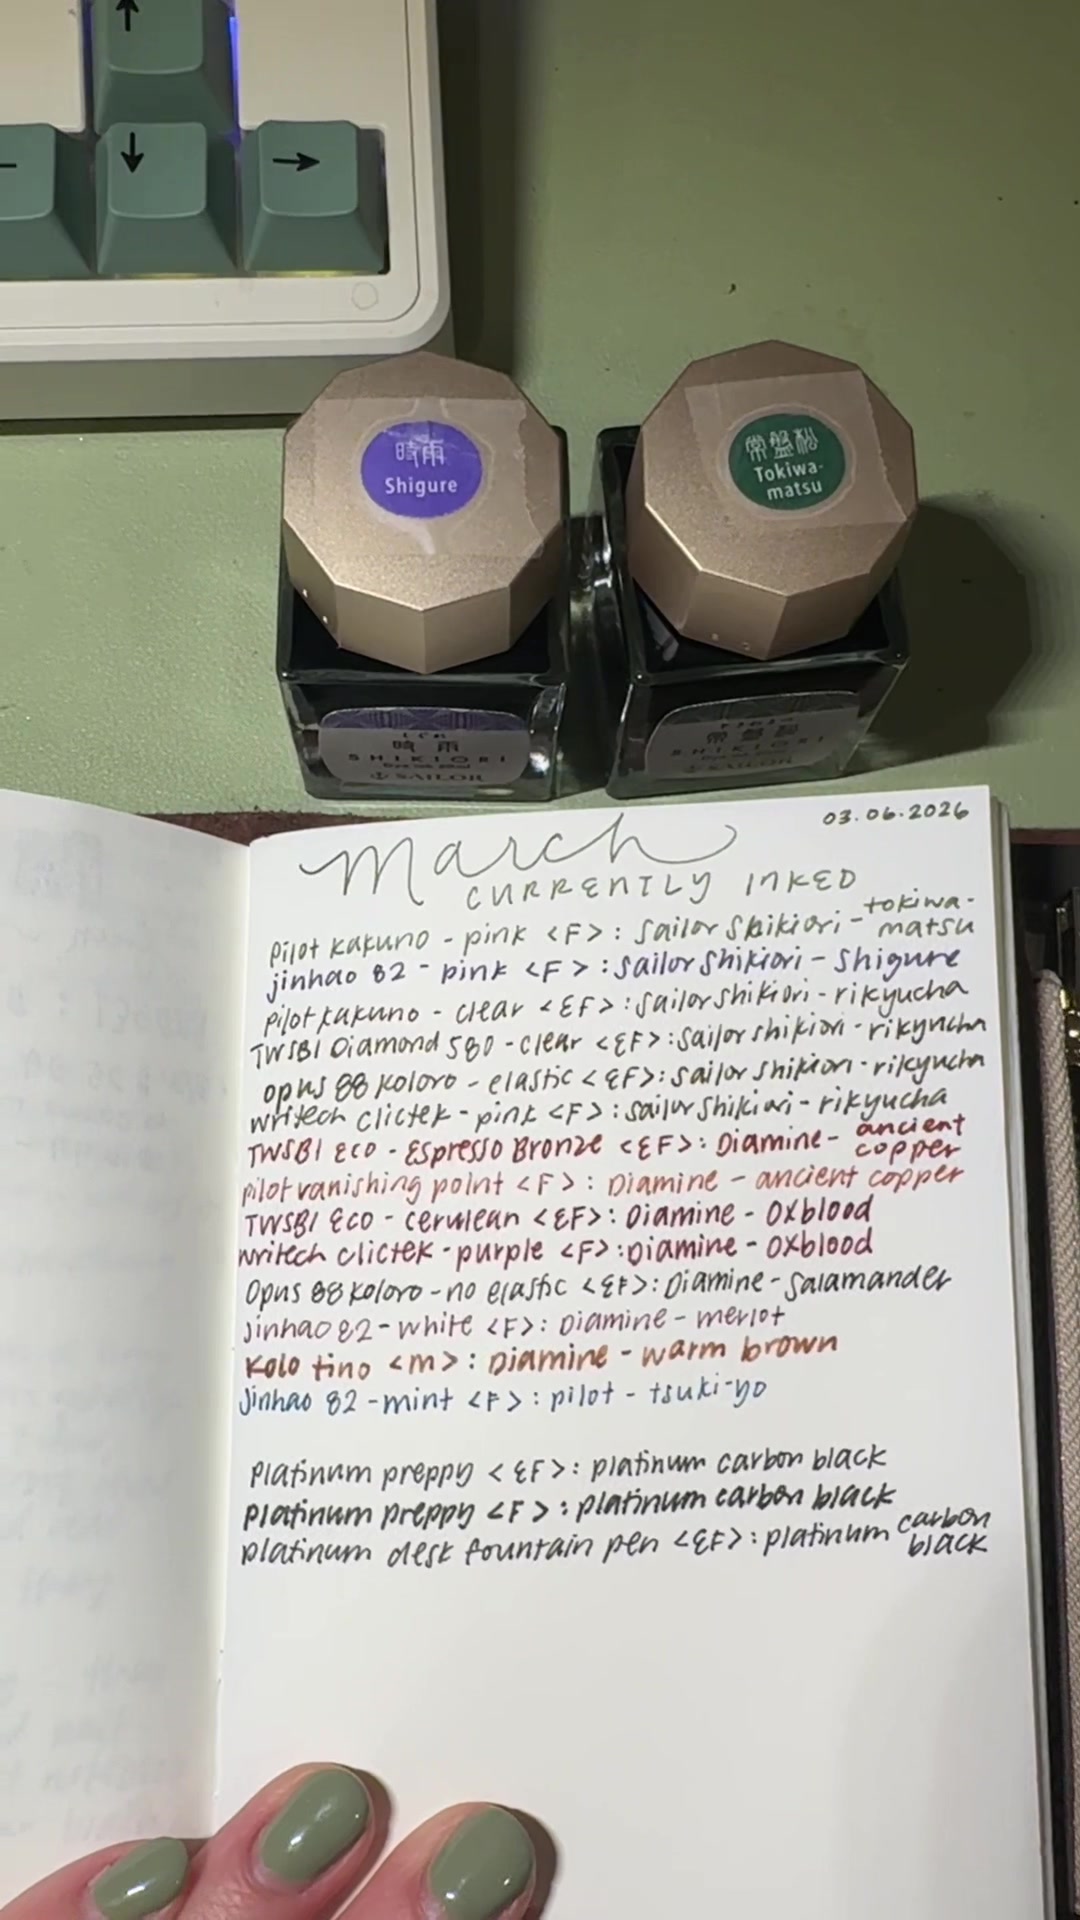 ↑
← ↓ →
時雨
Shigure
常盤松
Tokiwa-
matsu
しぐれ
時雨
SHIKIORI
Dye ink 20ml
SAILOR
常盤松
SHIKIORI
SAILOR
03.06.2026
March
CURRENTLY INKED
pilot kakuno - pink <F>: sailor shikiori - tokiwa-
matsu
jinhao 82 - pink <F>: sailor shikiori - shigure
pilot kakuno - clear <EF>: sailor shikiori - rikyucha
TWSBI Diamond 580 - clear <EF>: sailor shikiori - rikyucha
opus 88 koloro - elastic <EF>: sailor shikiori - rikyucha
writech clictek - pink <F>: sailor shikiori - rikyucha
TWSBI Eco - Espresso Bronze <EF>: Diamine - ancient
copper
pilot vanishing point <F>: Diamine - ancient copper
TWSBI Eco - cerulean <EF>: Diamine - Oxblood
writech clictek - purple <F>: Diamine - Oxblood
Opus 88 koloro - no elastic <EF>: Diamine - Salamander
jinhao 82 - white <F>: Diamine - merlot
Kolo tino <m>: Diamine - warm brown
Jinhao 82 - mint <F>: pilot - tsuki-yo
platinum preppy <EF>: platinum carbon black
platinum preppy <F>: platinum carbon black
platinum desk fountain pen <EF>: platinum carbon
black